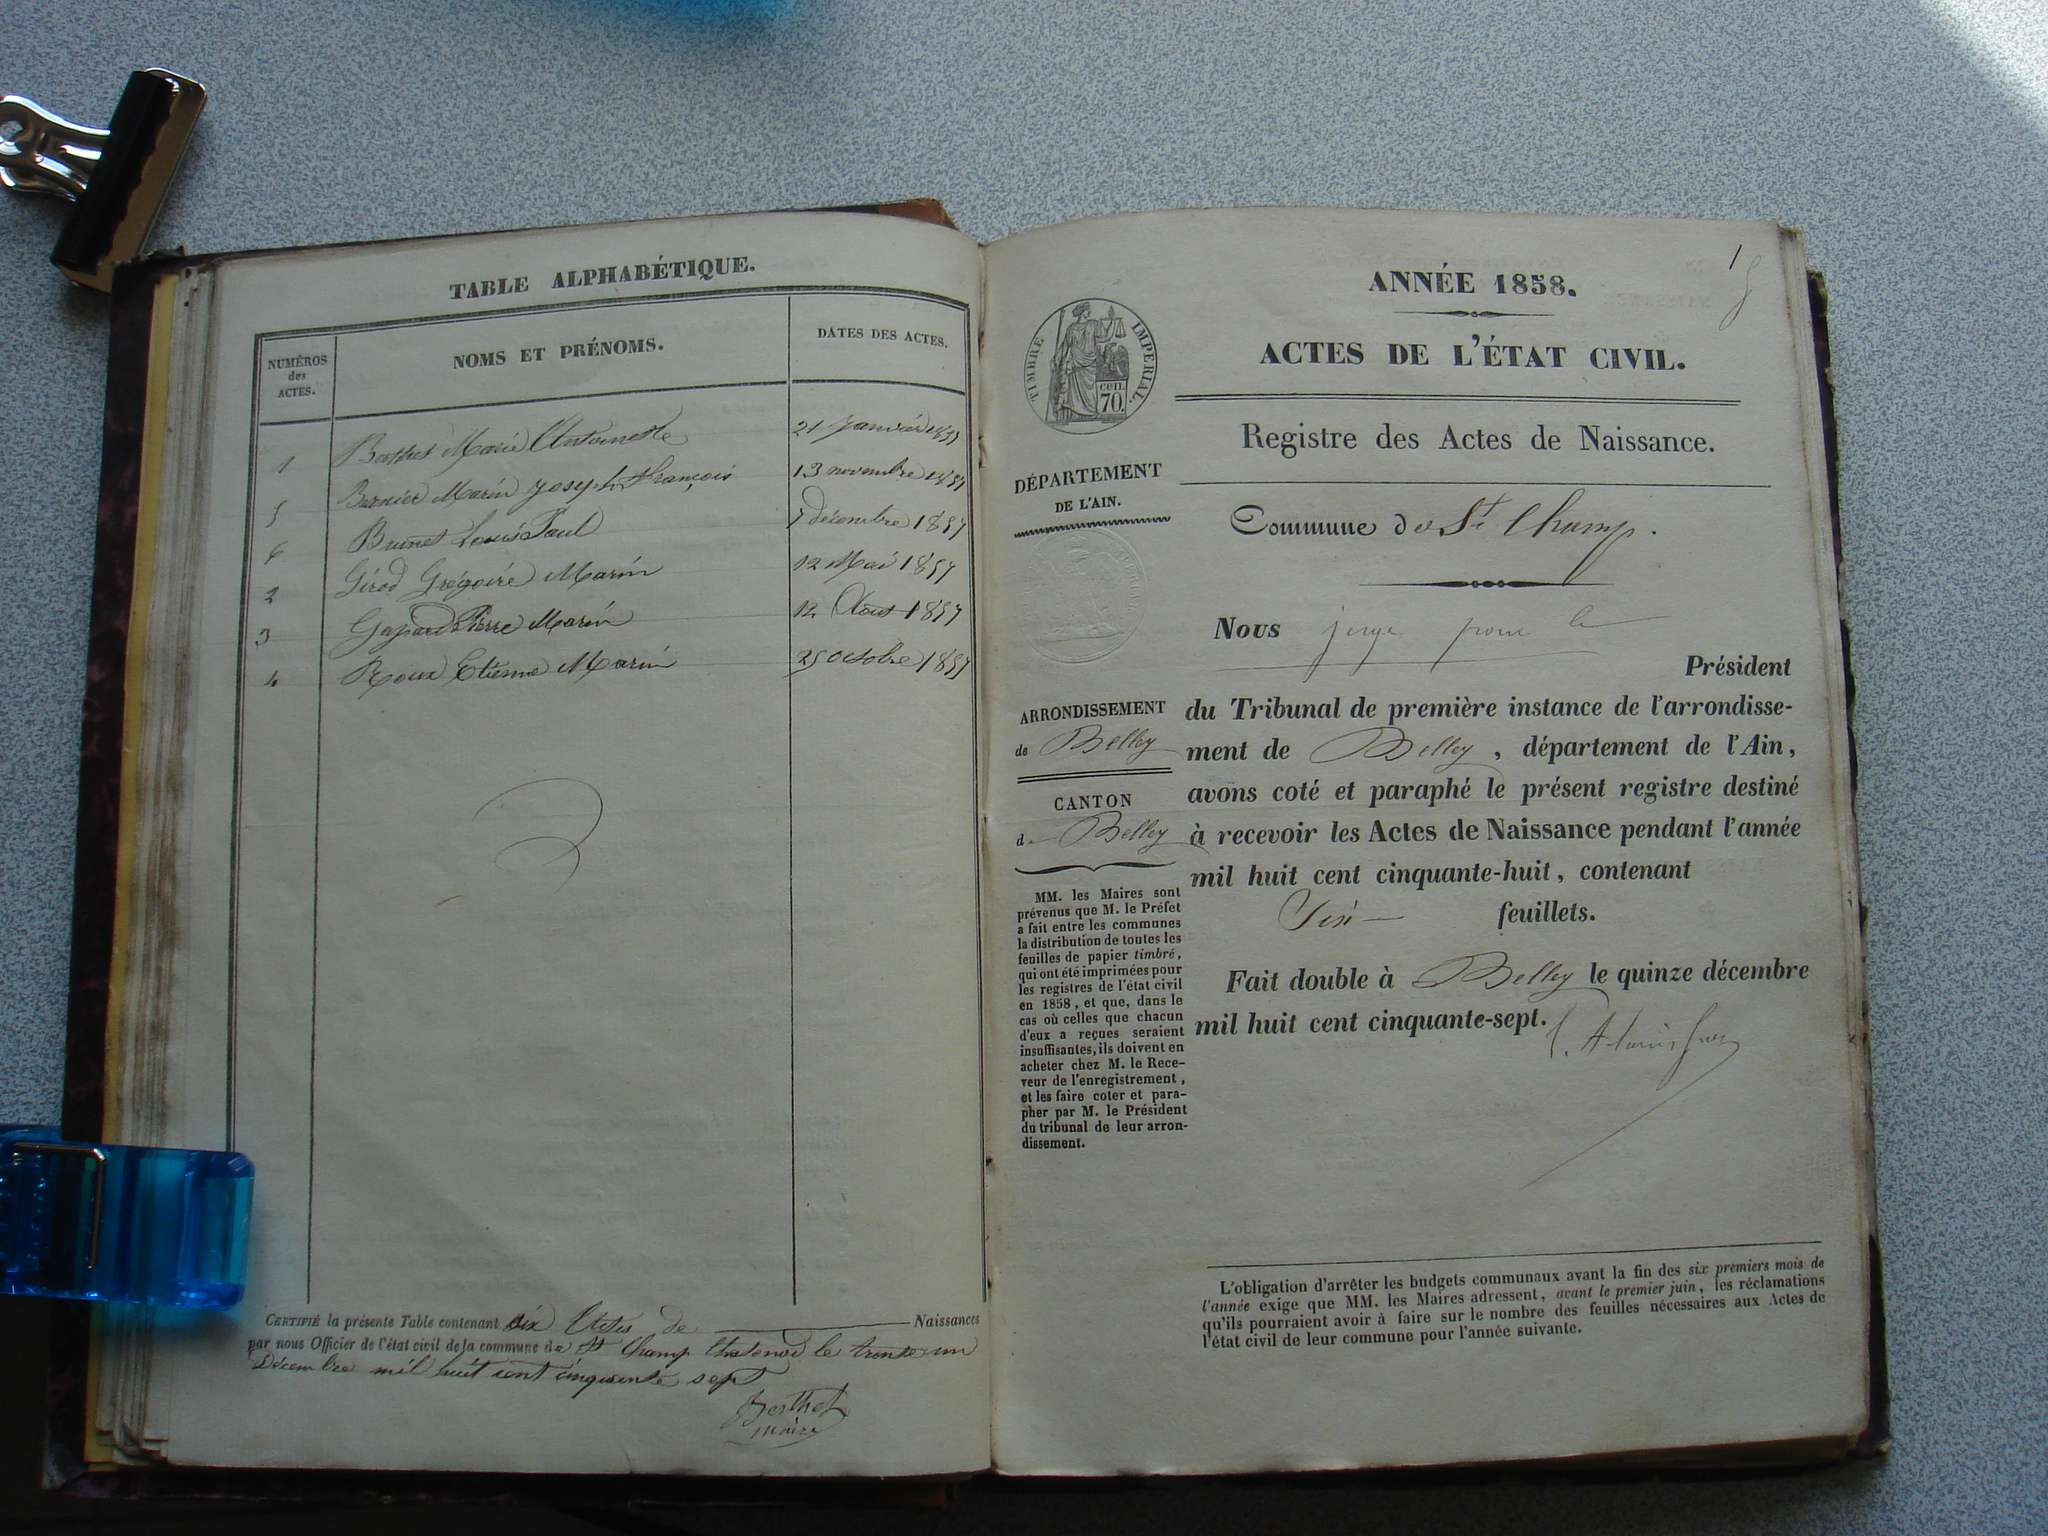 TABLE ALPHABÉTIQUE.
NUMÉROS
des
ACTES.
NOMS ET PRÉNOMS.
DATES DES ACTES.
1 Berthet Marie Antoinette 21 Janvié 1857
5 Bernier Marin Joseph François 13 novembre 1857
6 Brunet Louis Paul 5 décembre 1857
2 Girod Grégoire Marin 12 Mai 1857
3 Pierre Marin 12 Aout 1857
4 Roux Etienne Marin 25 octobre 1857
CERTIFIÉ la présente Table contenant six Actes de Naissances
par nous Officier de l'état civil de la commune de St Champ Chatenod le trente un
Décembre mil huit cent cinquante sept
Berthet
maire
1
ANNÉE 1858.
ACTES DE L'ÉTAT CIVIL.
Registre des Actes de Naissance.
Commune de St Champ.
TIMBRE IMPERIAL.
cen.
70.
DÉPARTEMENT
DE L'AIN.
ARRONDISSEMENT
de Belley
CANTON
de Belley
MM. les Maires sont
prévenus que M. le Préfet
a fait entre les communes
la distribution de toutes les
feuilles de papier timbré,
qui ont été imprimées pour
les registres de l'état civil
en 1858, et que, dans le
cas où celles que chacun
d'eux a reçues seraient
insuffisantes, ils doivent en
acheter chez M. le Rece-
veur de l'enregistrement,
et les faire coter et para-
pher par M. le Président
du tribunal de leur arron-
dissement.
Nous juge pour le
Président
du Tribunal de première instance de l'arrondisse-
ment de Belley, département de l'Ain,
avons coté et paraphé le présent registre destiné
à recevoir les Actes de Naissance pendant l'année
mil huit cent cinquante-huit, contenant
Six feuillets.
Fait double à Belley le quinze décembre
mil huit cent cinquante-sept.
L'obligation d'arrêter les budgets communaux avant la fin des six premiers mois de
l'année exige que MM. les Maires adressent, avant le premier juin, les réclamations
qu'ils pourraient avoir à faire sur le nombre des feuilles nécessaires aux Actes de
l'état civil de leur commune pour l'année suivante.